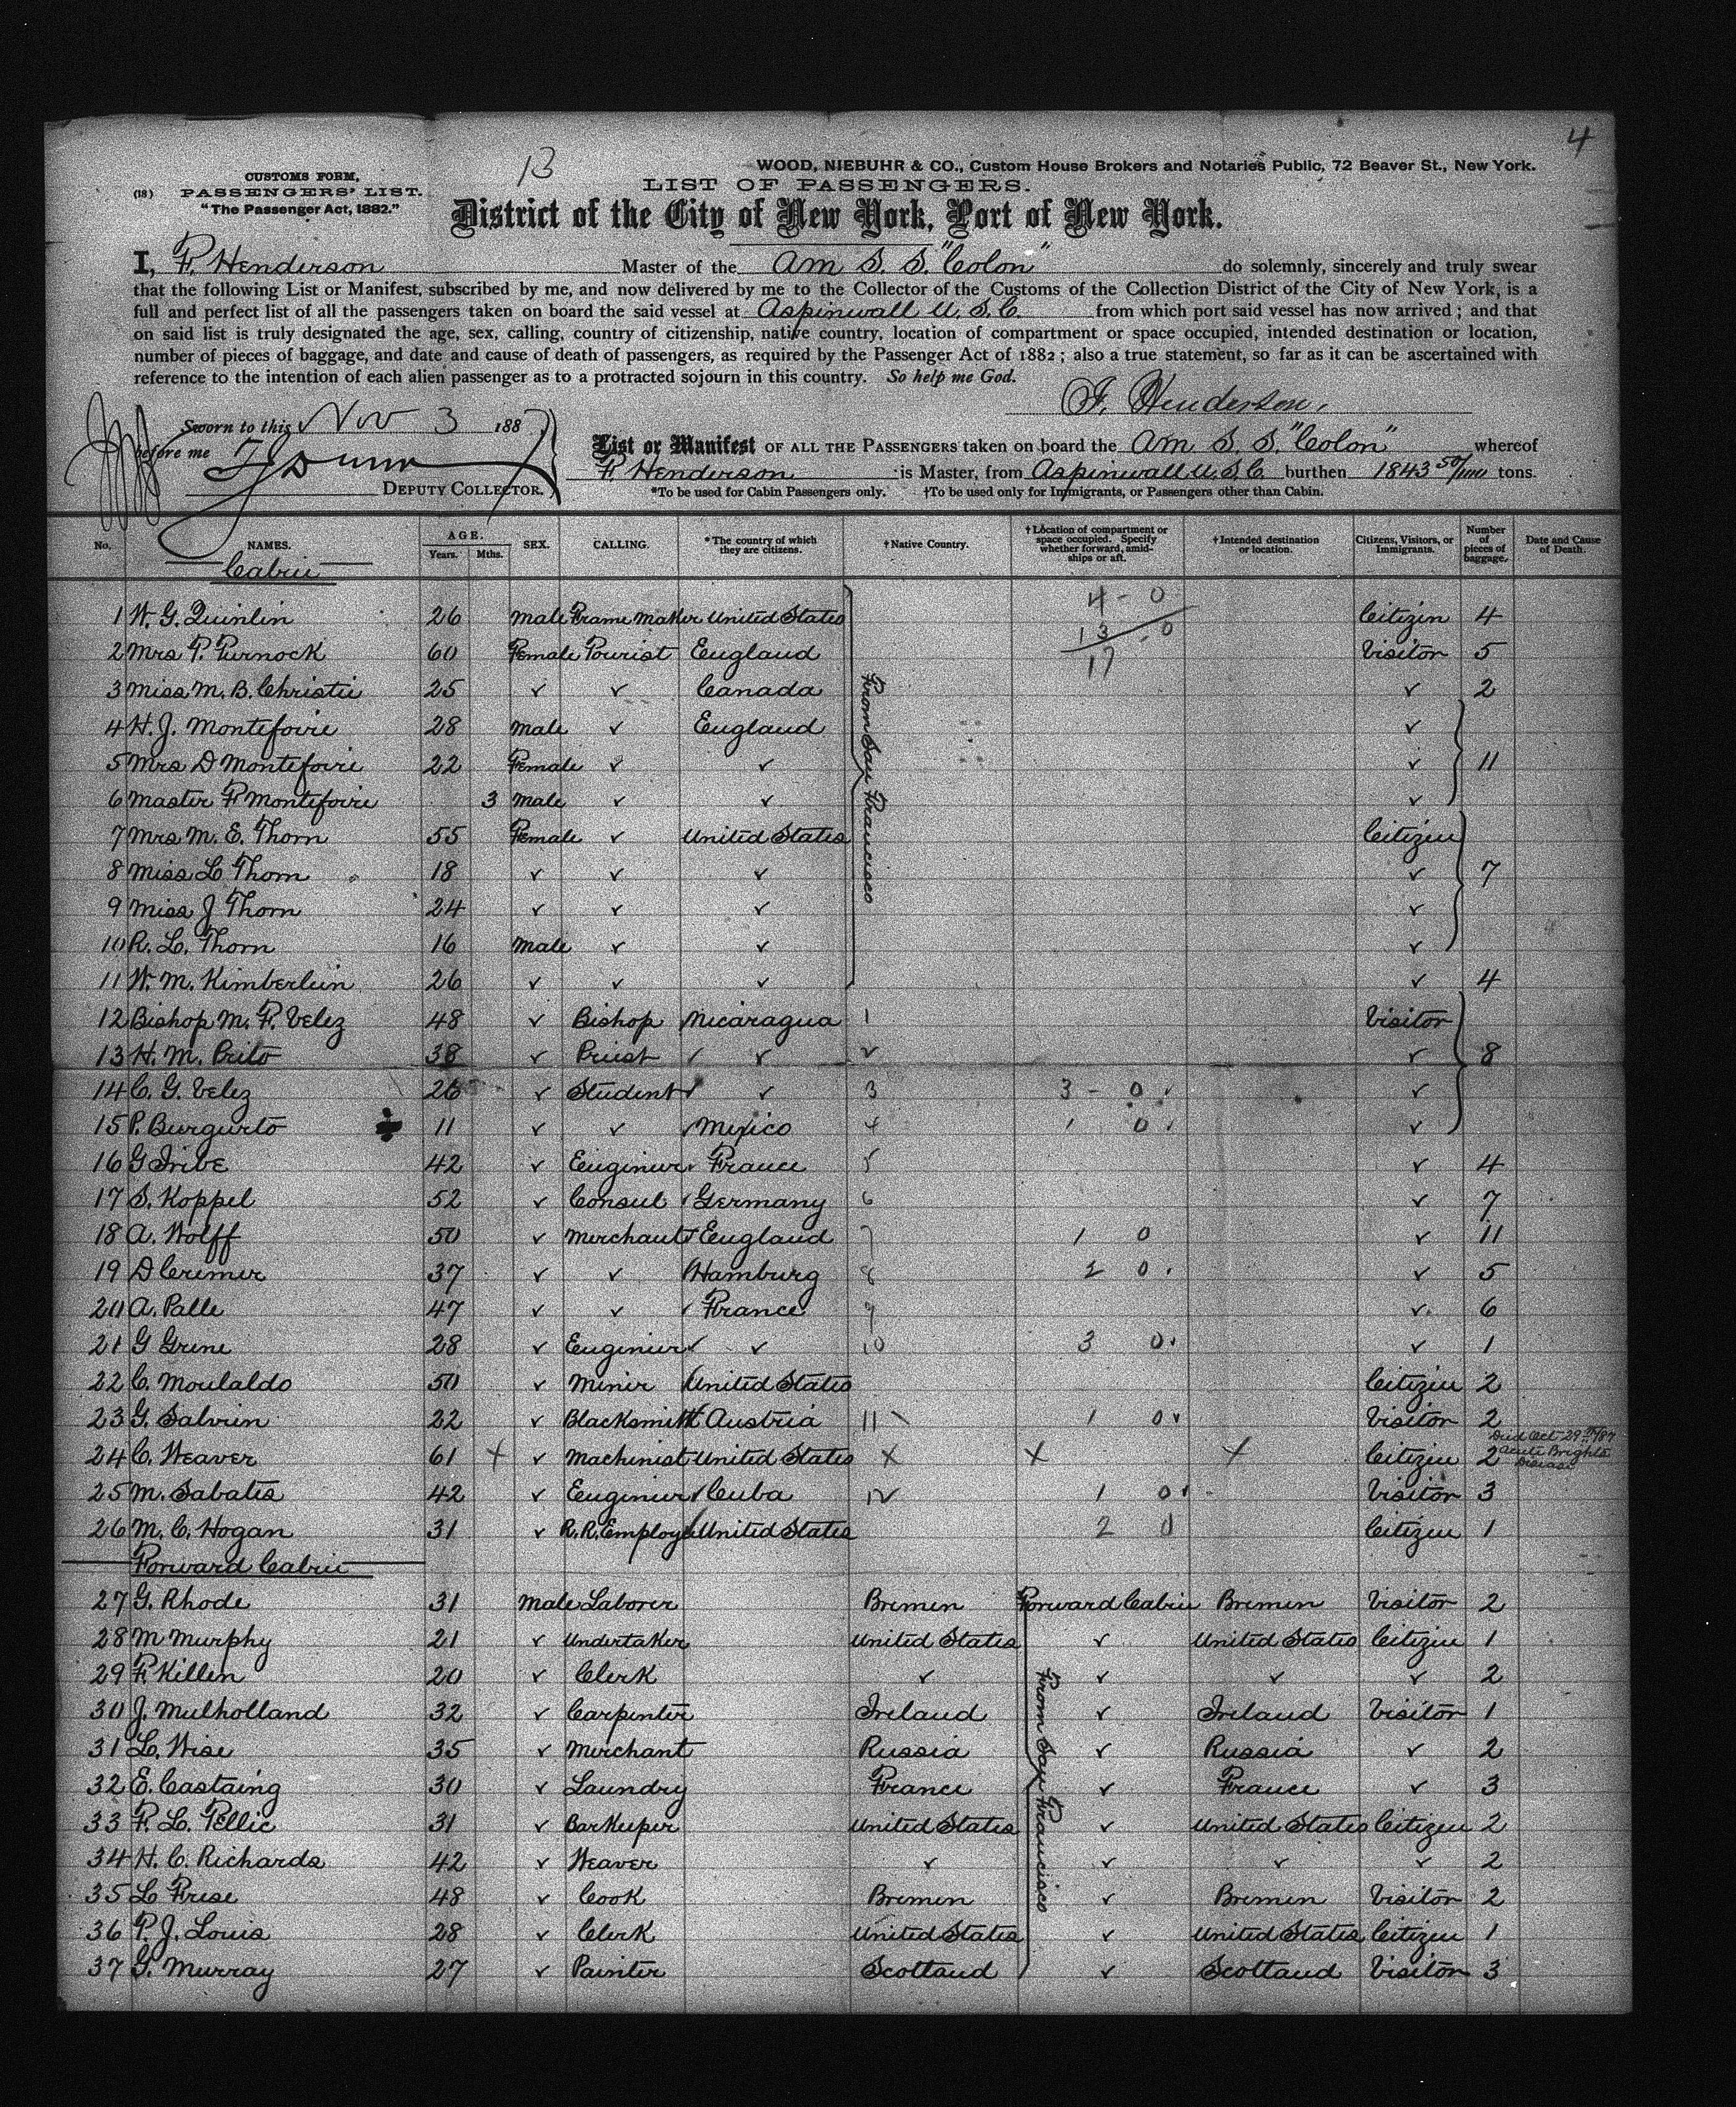 4
13
WOOD, NIEBUHR & CO., Custom House Brokers and Notaries Public, 72 Beaver St., New York.
CUSTOMS FORM,
(18) PASSENGERS' LIST.
"The Passenger Act, 1882."
LIST OF PASSENGERS.
District of the City of New York, Port of New York.
I, F. Henderson Master of the Am S. S. "Colon" do solemnly, sincerely and truly swear
that the following List or Manifest, subscribed by me, and now delivered by me to the Collector of the Customs of the Collection District of the City of New York, is a
full and perfect list of all the passengers taken on board the said vessel at Aspinwall U. S. C. from which port said vessel has now arrived; and that
on said list is truly designated the age, sex, calling, country of citizenship, native country, location of compartment or space occupied, intended destination or location,
number of pieces of baggage, and date and cause of death of passengers, as required by the Passenger Act of 1882; also a true statement, so far as it can be ascertained with
reference to the intention of each alien passenger as to a protracted sojourn in this country. So help me God.
F. Henderson.
Sworn to this Nov 3 188
before me
DEPUTY COLLECTOR.
List or Manifest OF ALL THE PASSENGERS taken on board the Am S. S. "Colon" whereof
F. Henderson is Master, from Aspinwall U. S. C. burthen 1843 50/100 tons.
*To be used for Cabin Passengers only. †To be used only for Immigrants, or Passengers other than Cabin.
No. NAMES. AGE. Years. Mths. SEX. CALLING. *The country of which they are citizens. †Native Country. †Location of compartment or space occupied. Specify whether forward, amidships or aft. †Intended destination or location. Citizens, Visitors, or Immigrants. Number of pieces of baggage. Date and Cause of Death.
Cabin
4 - 0
1 W. G. Quinlin 26 Male Frame Maker United States Citizen 4
13 . 0
2 Mrs P. Purnock 60 Female Tourist England Visitor 5
17
3 Miss M. B. Christie 25 ✓ ✓ Canada ✓ 2
From San Francisco
4 H. J. Montefoire 28 Male ✓ England ✓
5 Mrs D Montefoire 22 Female ✓ ✓ ✓ 11
6 Master F Montefoire 3 Male ✓ ✓ ✓
7 Mrs M. E. Thorn 55 Female ✓ United States Citizen
8 Miss L Thorn 18 ✓ ✓ ✓ ✓ 7
9 Miss J Thorn 24 ✓ ✓ ✓ ✓
10 R. L. Thorn 16 Male ✓ ✓ ✓
11 W. M. Kimberlin 26 ✓ ✓ ✓ ✓ 4
12 Bishop M. F. Velez 48 ✓ Bishop Nicaragua 1 Visitor
13 H. M. Brito 38 ✓ Priest ✓ ✓ 2 ✓ 8
14 C. G. Velez 26 ✓ Student ✓ ✓ 3 3 - 0 ✓
15 P. Burgurto 11 ✓ ✓ ✓ Mexico 4 1 0 ✓
16 G Iribe 42 ✓ Enginier ✓ France 5 ✓ 4
17 S. Koppel 52 ✓ Consul ✓ Germany 6 ✓ 7
18 A. Wolff 50 ✓ Merchant ✓ England 7 1 0 ✓ 11
19 D Cremer 37 ✓ ✓ Hamburg 8 2 0 ✓ 5
20 A. Palle 47 ✓ ✓ ✓ France 9 ✓ 6
21 G Grene 28 ✓ Enginier ✓ ✓ 10 3 0 ✓ 1
22 C. Moulaldo 50 ✓ Minir United States Citizen 2
23 G. Salvrin 22 ✓ Blacksmith Austria 11 1 0 ✓ Visitor 2
24 C. Weaver 61 X ✓ Machinist United States X X X Citizen 2 Died Oct 29th/87 Acute Brights Disease
25 M. Sabatis 42 ✓ Enginier ✓ Cuba 12 1 0 Visitor 3
26 M. C. Hogan 31 ✓ R. R. Employe United States 2 0 Citizen 1
Forward Cabin
27 G. Rhode 31 Male Laborer Bremen Forward Cabin Bremen Visitor 2
28 M Murphy 21 ✓ Undertaker United States ✓ United States Citizen 1
29 F. Killen 20 ✓ Clerk ✓ ✓ ✓ ✓ 2
From San Francisco
30 J. Mulholland 32 ✓ Carpenter Ireland ✓ Ireland Visitor 1
31 L. Wise 35 ✓ Merchant Russia ✓ Russia ✓ 2
32 E. Castaing 30 ✓ Laundry France ✓ France ✓ 3
33 F. L. Pellie 31 ✓ BarKeeper United States ✓ United States Citizen 2
34 H. C. Richards 42 ✓ Weaver ✓ ✓ ✓ ✓ 2
35 L Frese 48 ✓ Cook Bremen ✓ Bremen Visitor 2
36 P. J. Louis 28 ✓ Clerk United States ✓ United States Citizen 1
37 G. Murray 27 ✓ Painter Scotland ✓ Scotland Visitor 3